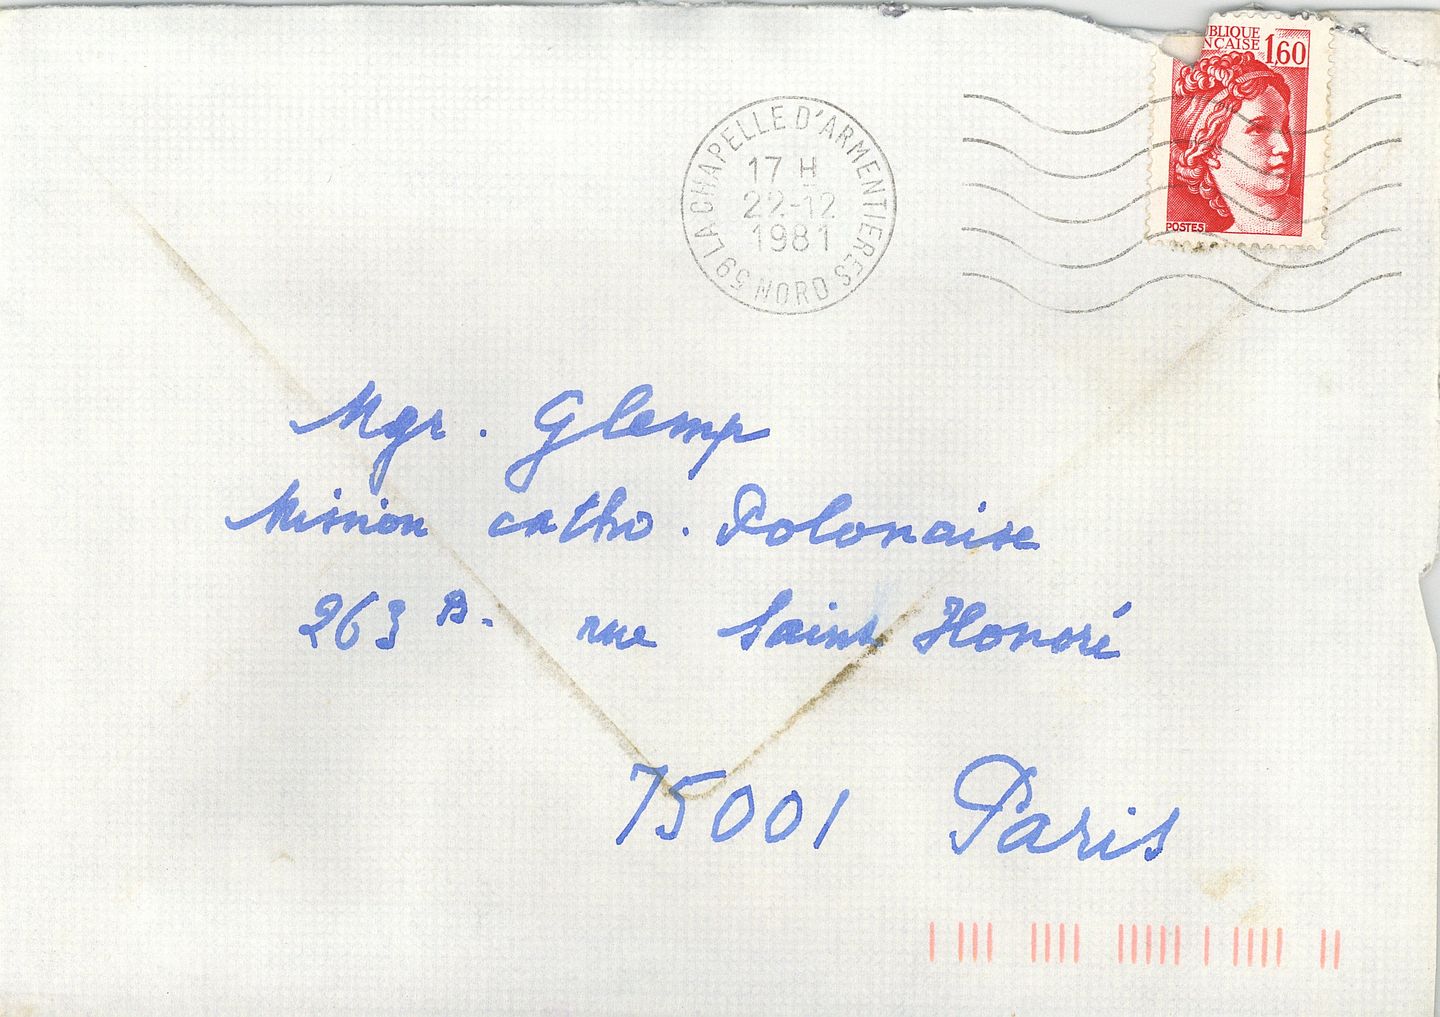 UBLIQUE
NCAISE 1,60
POSTES
59 LA CHAPELLE D'ARMENTIERES NORD
17 H
22-12
1981
Mgr. Glemp
Mission catho. Polonaise
263 B. rue Saint Honoré
75001 Paris